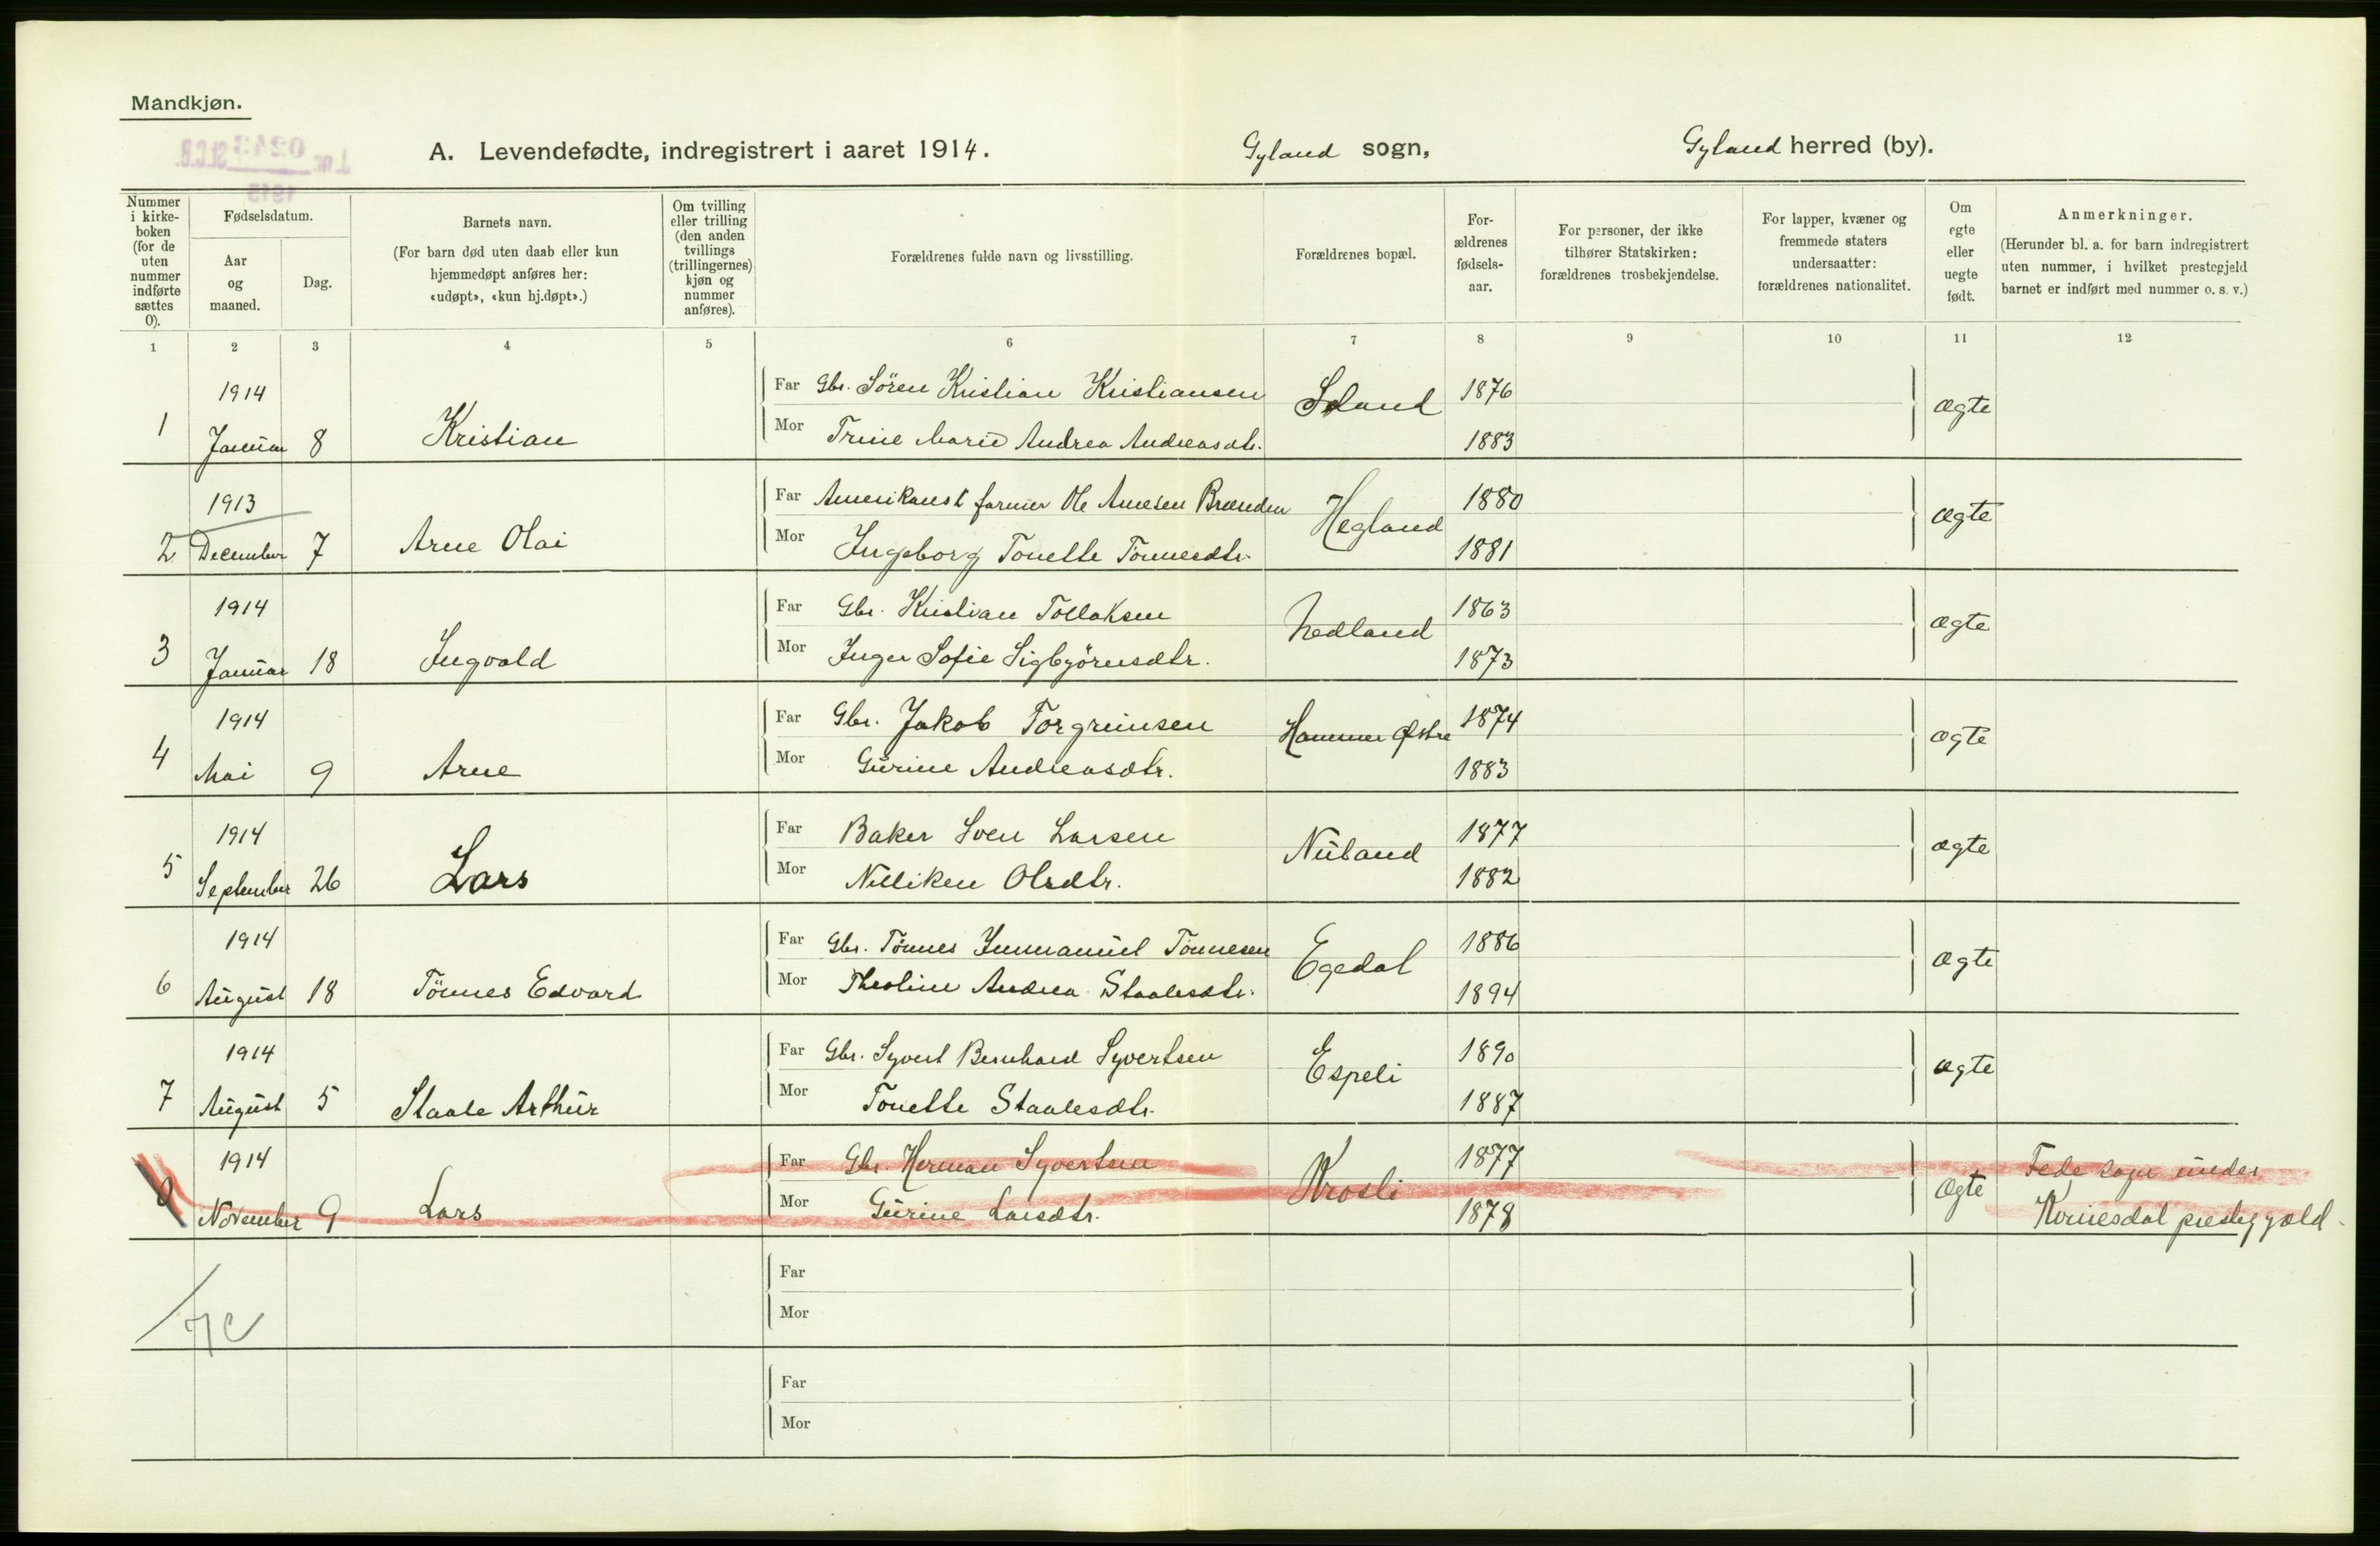 Mandkjøn.
J.nr. 0243 St.C.B.
1915
A. Levendefødte, indregistrert i aaret 1914. Gyland sogn, Gyland herred (by).
Nummer i kirke-boken (for de uten nummer indførte sættes 0).
Fødselsdatum.
Aar og maaned.
Dag.
Barnets navn.
(For barn død uten daab eller kun hjemmedøpt anføres her: «udøpt», «kun hj.døpt».)
Om tvilling eller trilling (den anden tvillings (trillingernes) kjøn og nummer anføres).
Forældrenes fulde navn og livsstilling.
Forældrenes bopæl.
For-ældrenes fødsels-aar.
For personer, der ikke tilhører Statskirken: forældrenes trosbekjendelse.
For lapper, kvæner og fremmede staters undersaatter: forældrenes nationalitet.
Om egte eller uegte født.
Anmerkninger.
(Herunder bl. a. for barn indregistrert uten nummer, i hvilket prestegjeld barnet er indført med nummer o. s. v.)
1 2 3 4 5 6 7 8 9 10 11 12
1914 Far Gbr. Sören Kristian Kristiansen Seland 1876 ægte
1 Januar 8 Kristian Mor Trine Marie Andrea Andreasdtr. 1883
1913 Far Amerikansk farmer Ole Arnesen Brænden Hegland 1880 ægte
2 December 7 Arne Olai Mor Ingeborg Tonette Tönnesdtr. 1881
1914 Far Gbr. Kristian Tollaksen Nedland 1863 ægte
3 Januar 18 Ingvald Mor Inger Sofie Sigbjörnsdtr. 1873
1914 Far Gbr. Jakob Torgrimsen Hammer Østre 1874 ægte
4 Mai 9 Arne Mor Gurine Andreasdtr. 1883
1914 Far Baker Sven Larsen Nuland 1877 ægte
5 September 26 Lars Mor Nilliken Olsdtr. 1882
1914 Far Gbr. Tönnes Immanuel Tönnesen Egedal 1886 ægte
6 August 18 Tönnes Edvard Mor Theoline Andrea Staalesdtr. 1894
1914 Far Gbr. Syvert Bernhard Syvertsen Espeli 1890 ægte
7 August 5 Staale Arthur Mor Tonette Staalesdtr. 1887
1914 Far Gbr. Herman Syvertsen Krosli 1877 ægte Fede sogn under
0 November 9 Lars Mor Gurine Larsdtr. 1878 Kvinesdal prestegjæld.
Far
Mor
Far
Mor